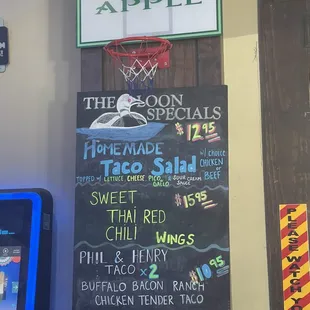 APPLE
THE LOON SPECIALS
HOMEMADE $12.95
TACO SALAD W/ CHOICE CHICKEN OR BEEF
TOPPED W/ LETTUCE, CHEESE, PICO DE GALLO & SOUR CREAM SAUCE
SWEET $15.95
THAI RED
CHILI WINGS
PHIL & HENRY
TACO x2 $10.95
BUFFALO BACON RANCH
CHICKEN TENDER TACO
PLEASE
WATCH Y